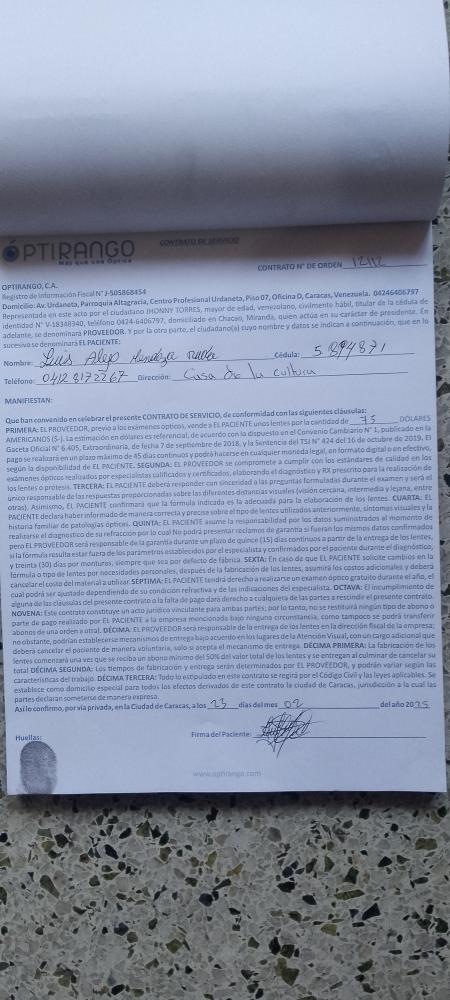 ÓPTIRANGO
Más que una Óptica
CONTRATO DE SERVICIO
CONTRATO N° DE ORDEN 1212
OPTIRANGO, C.A.
Registro de Información Fiscal N° J-505868454
Domicilio: Av. Urdaneta, Parroquia Altagracia, Centro Profesional Urdaneta, Piso 07, Oficina D, Caracas, Venezuela. 04246406797
Representada en este acto por el ciudadano JHONNY TORRES, mayor de edad, venezolano, civilmente hábil, titular de la cédula de
identidad N° V-18348340, teléfono 0424-6406797, domiciliado en Chacao, Miranda, quien actúa en su carácter de presidente. En
adelante, se denominará PROVEEDOR. Y por la otra parte, el ciudadano(a) cuyo nombre y datos se indican a continuación, que en lo
sucesivo se denominará EL PACIENTE:
Nombre: Luis Alejo Cédula: 5.894871
Teléfono: 0412 8172267 Dirección: Casa de la cultura
MANIFIESTAN:
Que han convenido en celebrar el presente CONTRATO DE SERVICIO, de conformidad con las siguientes cláusulas:
PRIMERA: EL PROVEEDOR, previo a los exámenes ópticos, vende a EL PACIENTE unos lentes por la cantidad de 75 DÓLARES
AMERICANOS ($-). La estimación en dólares es referencial, de acuerdo con lo dispuesto en el Convenio Cambiario N° 1, publicado en la
Gaceta Oficial N° 6.405, Extraordinaria, de fecha 7 de septiembre de 2018, y la Sentencia del TSJ N° 424 del 16 de octubre de 2019. El
pago se realizará en un plazo máximo de 45 días continuos y podrá hacerse en cualquier moneda legal, en formato digital o en efectivo,
según la disponibilidad de EL PACIENTE. SEGUNDA: EL PROVEEDOR se compromete a cumplir con los estándares de calidad en los
exámenes ópticos realizados por especialistas calificados y certificados, elaborando el diagnóstico y RX prescrito para la realización de
los lentes o prótesis. TERCERA: EL PACIENTE deberá responder con sinceridad a las preguntas formuladas durante el examen y será el
único responsable de las respuestas proporcionadas sobre las diferentes distancias visuales (visión cercana, intermedia y lejana, entre
otras). Asimismo, EL PACIENTE confirmará que la fórmula indicada es la adecuada para la elaboración de los lentes. CUARTA: EL
PACIENTE declara haber informado de manera correcta y precisa sobre el tipo de lentes utilizados anteriormente, síntomas visuales y la
historia familiar de patologías ópticas. QUINTA: EL PACIENTE asume la responsabilidad por los datos suministrados al momento de
realizarse el diagnostico de su refracción por lo cual No podrá presentar reclamos de garantía si fueran los mismos datos confirmados
pero EL PROVEEDOR será responsable de la garantía durante un plazo de quince (15) días continuos a partir de la entrega de los lentes,
si la fórmula resulta estar fuera de los parámetros establecidos por el especialista y confirmados por el paciente durante el diagnóstico,
y treinta (30) días por monturas, siempre que sea por defecto de fábrica. SEXTA: En caso de que EL PACIENTE solicite cambios en la
fórmula o tipo de lentes por necesidades personales, después de la fabricación de los lentes, asumirá los costos adicionales y deberá
cancelar el costo del material a utilizar. SEPTIMA: EL PACIENTE tendrá derecho a realizarse un examen óptico gratuito durante el año, el
cual podrá ser ajustado dependiendo de su condición refractiva y de las indicaciones del especialista. OCTAVA: El incumplimiento de
alguna de las cláusulas del presente contrato o la falta de pago dará derecho a cualquiera de las partes a rescindir el presente contrato.
NOVENA: Este contrato constituye un acto jurídico vinculante para ambas partes; por lo tanto, no se restituirá ningún tipo de abono o
parte de pago realizado por EL PACIENTE a la empresa mencionada bajo ninguna circunstancia, como tampoco se podrá transferir
abonos de una orden a otra). DÉCIMA: EL PROVEEDOR será responsable de la entrega de los lentes en la dirección fiscal de la empresa;
no obstante, podrían establecerse mecanismos de entrega bajo acuerdo en los lugares de la Atención Visual, con un cargo adicional que
deberá cancelar el paciente de manera voluntaria, solo si acepta el mecanismo de entrega. DÉCIMA PRIMERA: La fabricación de los
lentes comenzará una vez que se reciba un abono mínimo del 50% del valor total de los lentes y se entregan al culminar de cancelar su
total DÉCIMA SEGUNDA: Los tiempos de fabricación y entrega serán determinados por EL PROVEEDOR, y podrán variar según las
características del trabajo. DÉCIMA TERCERA: Todo lo estipulado en este contrato se regirá por el Código Civil y las leyes aplicables. Se
establece como domicilio especial para todos los efectos derivados de este contrato la ciudad de Caracas, jurisdicción a la cual las
partes declaran someterse de manera expresa.
Así lo confirmo, por vía privada, en la Ciudad de Caracas, a los 23 días del mes 02 del año 2025
Huellas: Firma del Paciente:
www.optirango.com